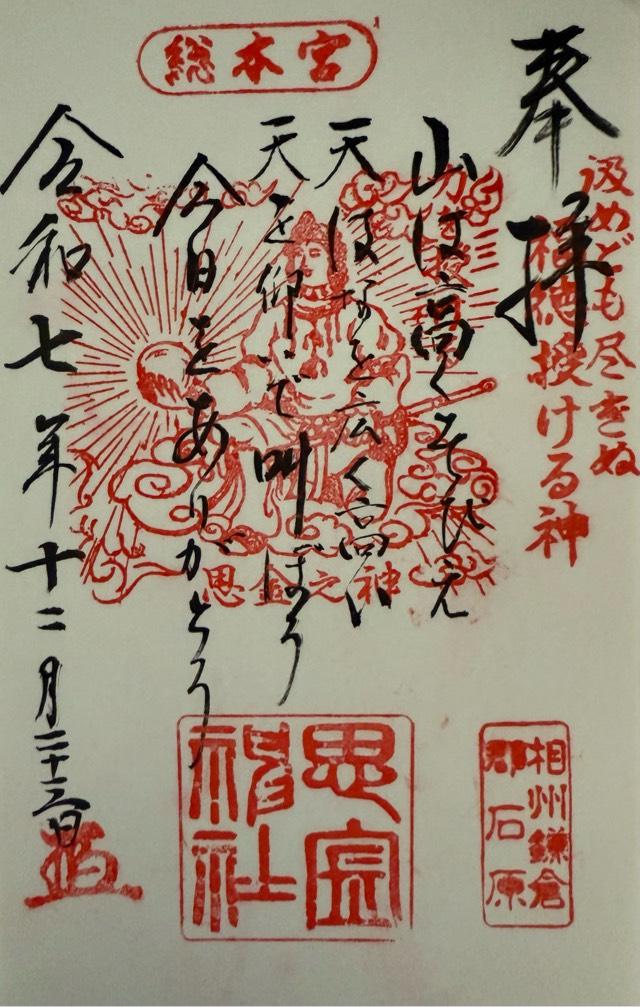 総本宮
奉拝
汲めども尽きぬ
福徳授ける神
山は高くそびえ
天はなを広く高い
天を仰いで叫ぼう
今日をありがとう
令和七年十二月二十三日
思金之神
思金
神社
相州鎌倉
郡石原